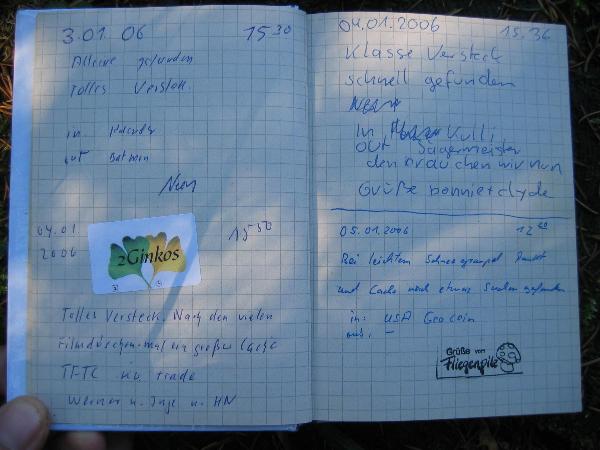 3.01.06 15 30
Alleine gefunden
tolles Versteck.
in
out Batman
04.01 2006 15 50
2Ginkos
Tolles Versteck. Nach den vielen
Filmdöschen mal ein großer Cache
TFTC no trade
Werner u. Inge u. HN
04.01.2006 15.36
Klasse Versteck
schnell gefunden
In Kulli
out Jägermeister
den brauchen wir nun
Grüße bonnie+clyde
05.01.2006 12
Bei leichtem Schneegraupel
und Cache nach etwas Suchen gefunden
in: USA Geocoin
out: -
Grüße von
Fliegenpilz